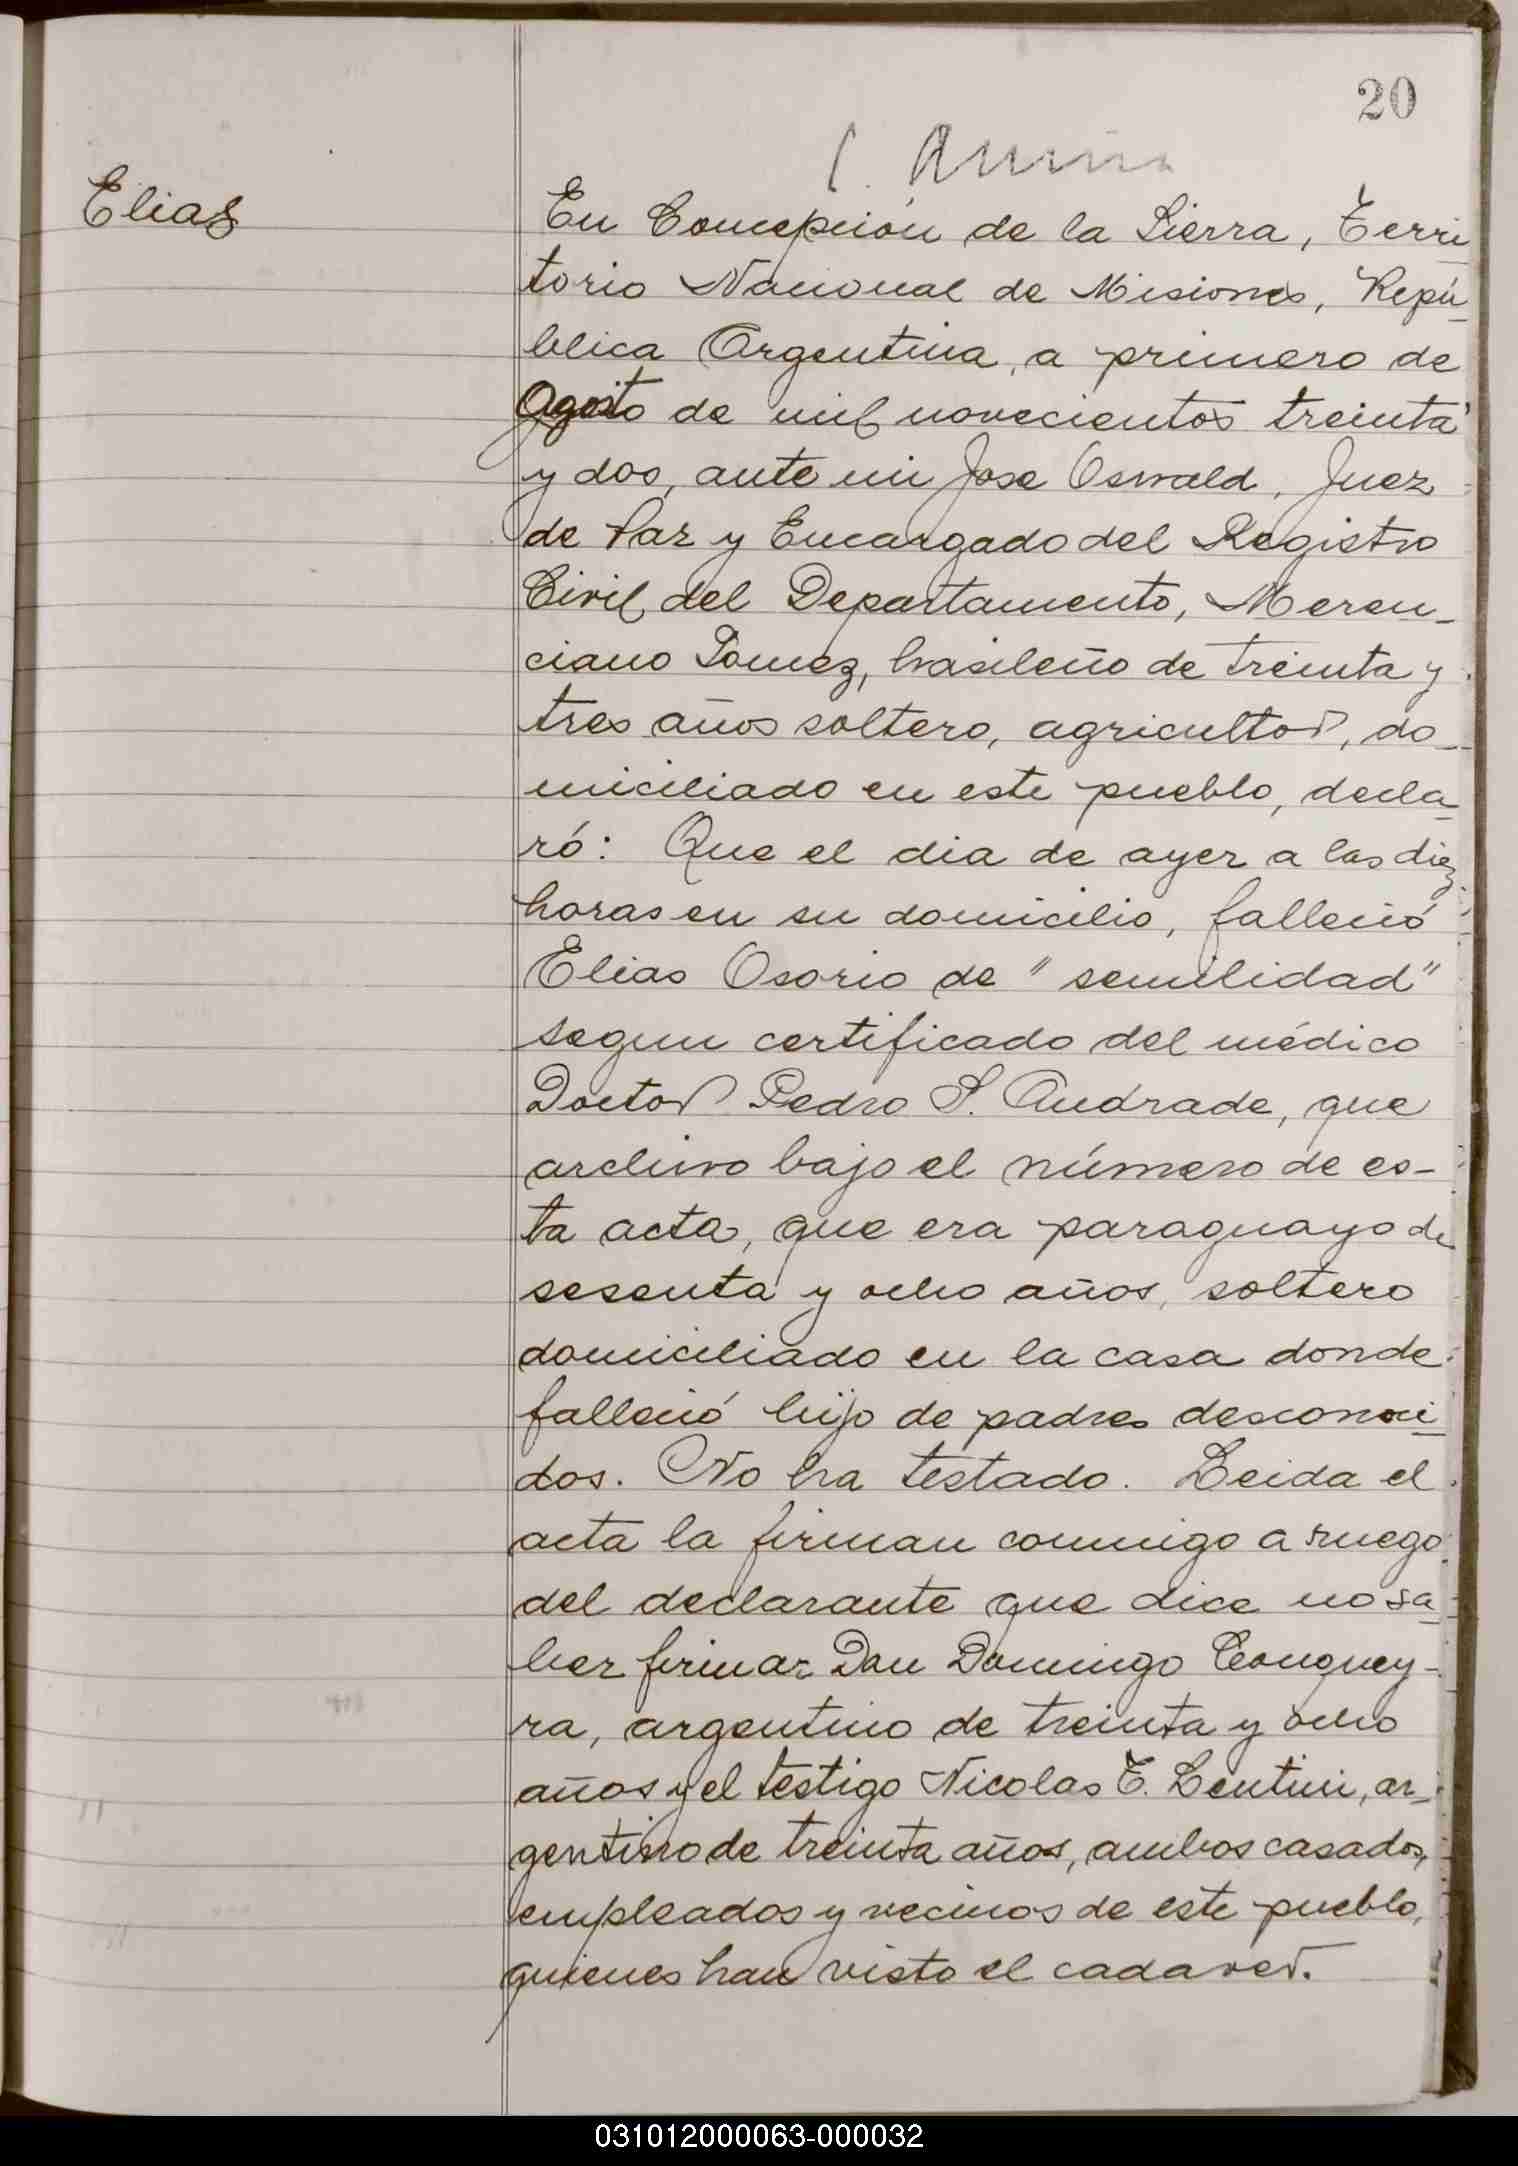 20
Elias
En Concepción de la Sierra, Terri
torio Nacional de Misiones, Repú
blica Argentina, a primero de
Agosto de mil novecientos treinta
y dos, ante mi Jose Oswald, Juez
de Paz y Encargado del Registro
Civil del Departamento, Meren-
ciano Gomez, brasileño de treinta y
tres años soltero, agricultor, do-
miciliado en este pueblo, decla
ró: Que el dia de ayer a las diez
horas en su domicilio, falleció
Elias Osorio de "semilidad"
segun certificado del médico
Doctor Pedro S. Andrade, que
archivo bajo el número de es-
ta acta, que era paraguayo de
sesenta y ocho años, soltero
domiciliado en la casa donde
falleció hijo de padres desconoci
dos. No ha testado. Leida el
acta la firman conmigo a ruego
del declarante que dice no sa
ber firmar Don Domingo
ra, argentino de treinta y ocho
años y el testigo Nicolas T. Lentini, ar-
gentino de treinta años, ambos casados,
empleados y vecinos de este pueblo,
quienes han visto el cadaver.
031012000063-000032